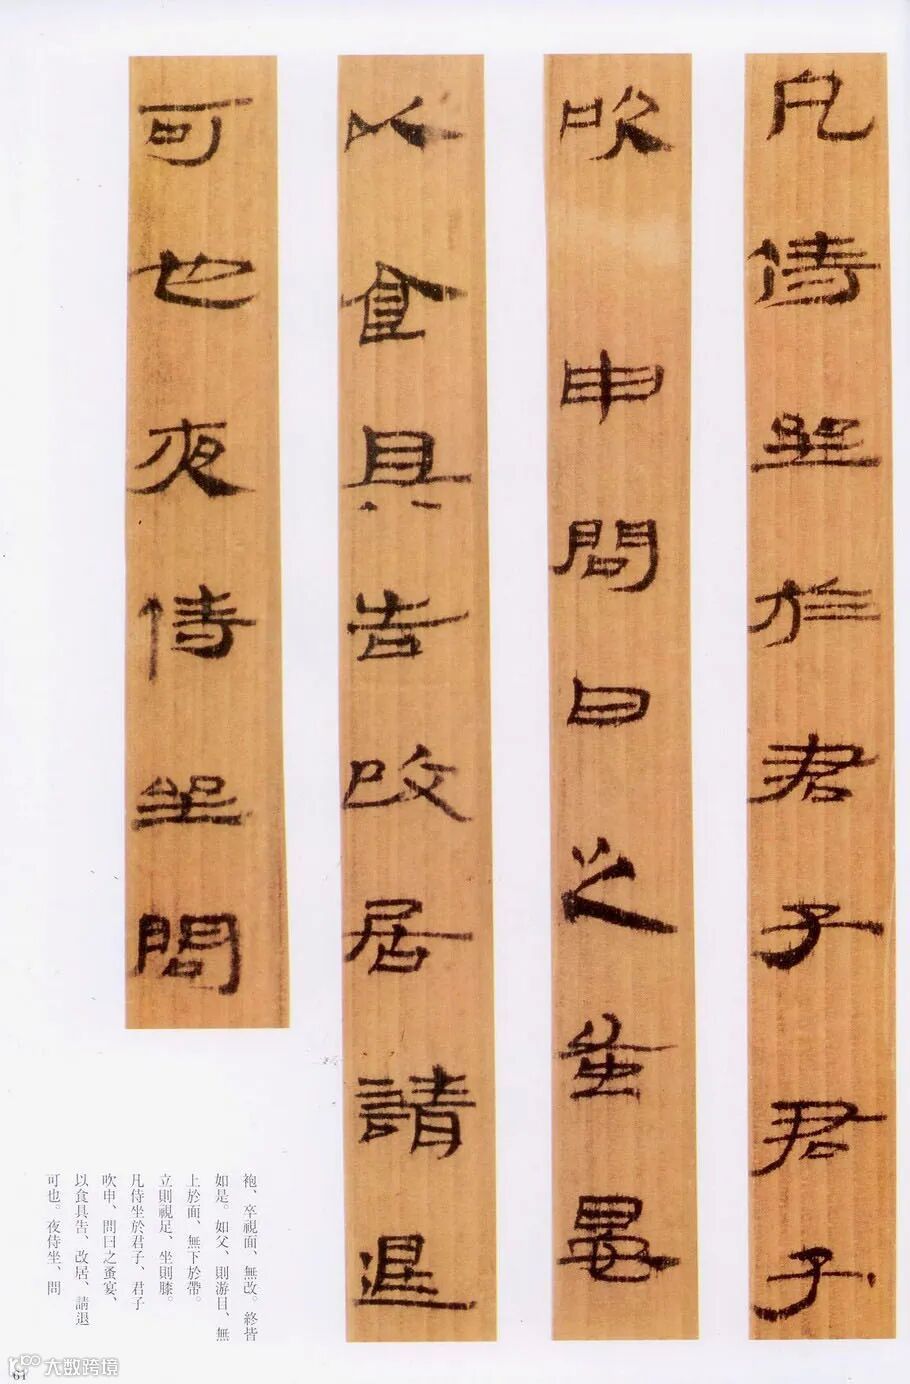 凡侍坐於君子君子
吹申問日之蚤晏
以食具告改居請退
可也夜侍坐問
袍、卒視面、無改。終皆
如是。如父、則游目、無
上於面、無下於帶。
立則視足、坐則膝。
凡侍坐於君子、君子
吹申、問日之蚤宴、
以食具告、改居、請退
可也。夜侍坐、問
61
大数跨境